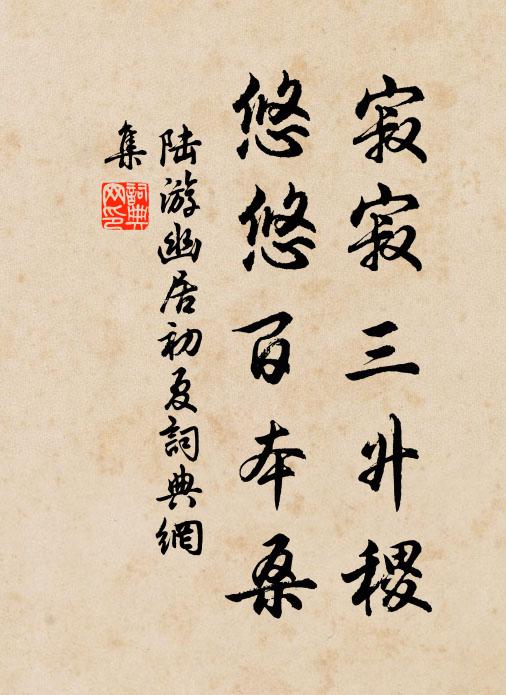 寂寂三升稷
悠悠百本桑
陆游幽居初夏詞典網
集
詞典
网印